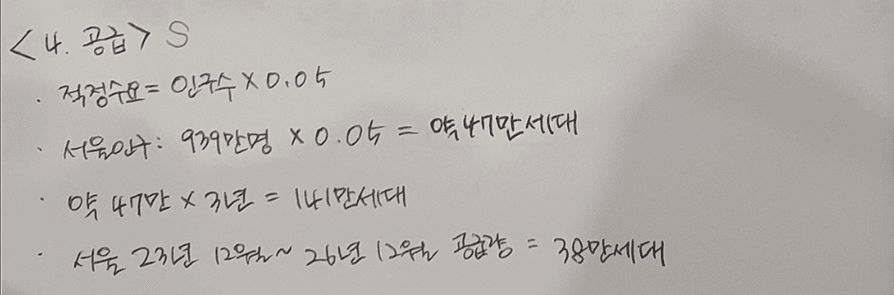 <4. 공급> S
· 적정수요 = 인구수 × 0.05
· 서울인구: 939만명 × 0.05 = 약 47만세대
· 약 47만 × 3년 = 141만세대
· 서울 23년 12월~ 26년 12월 공급량 = 38만세대